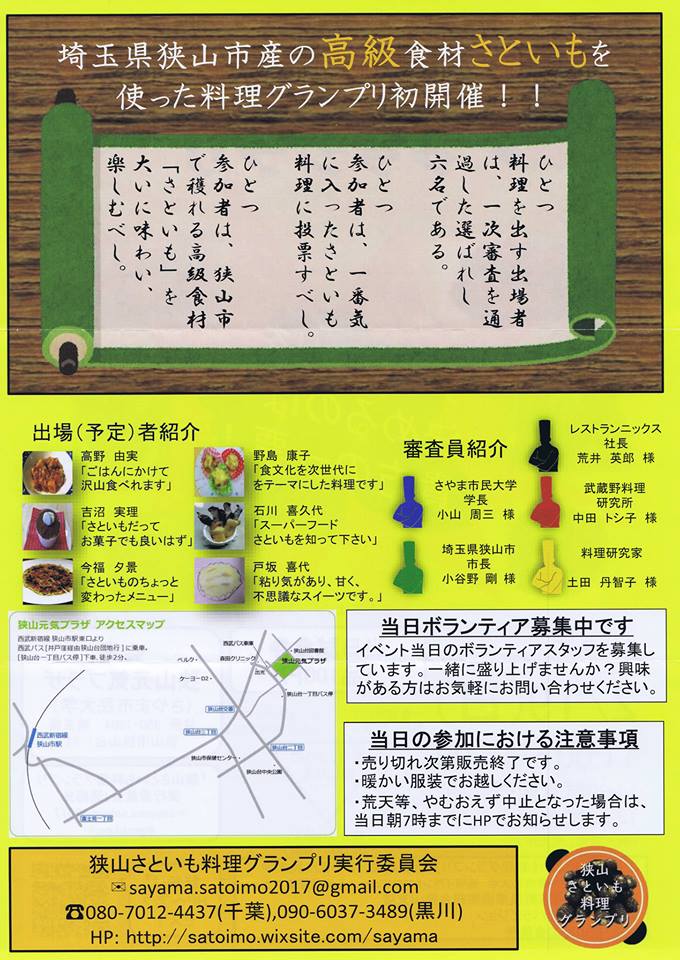 埼玉県狭山市産の高級食材さといもを
使った料理グランプリ初開催！！
ひとつ
料理を出す出場者
は、一次審査を通
過した選ばれし
六名である。
ひとつ
参加者は、一番気
に入ったさといも
料理に投票すべし。
ひとつ
参加者は、狭山市
で穫れる高級食材
「さといも」を
大いに味わい、
楽しむべし。
出場(予定)者紹介
高野 由実
「ごはんにかけて
沢山食べれます」
野島 康子
「食文化を次世代に
をテーマにした料理です」
吉沼 実理
「さといもだって
お菓子でも良いはず」
石川 喜久代
「スーパーフード
さといもを知って下さい」
今福 夕景
「さといものちょっと
変わったメニュー」
戸坂 喜代
「粘り気があり、甘く、
不思議なスイーツです。」
審査員紹介
レストランニックス
社長
荒井 英郎 様
さやま市民大学
学長
小山 周三 様
武蔵野料理
研究所
中田 トシ子 様
埼玉県狭山市
市長
小谷野 剛 様
料理研究家
土田 丹智子 様
狭山元気プラザ アクセスマップ
西武新宿線 狭山市駅東口より
西武バス「井戸窪経由狭山台団地行」に乗車。
「狭山台一丁目バス停」下車、徒歩2分。
西武バス車庫
狭山台図書館
ベルク
森田クリニック
狭山元気プラザ
ケーヨーD2
出光
狭山台一丁目バス停
狭山台交番
狭山台三丁目
狭山台二丁目
西武新宿線
狭山市駅
狭山市保健センター
狭山台中央公園
富士見一丁目
当日ボランティア募集中です
イベント当日のボランティアスタッフを募集し
ています。一緒に盛り上げませんか？興味
がある方はお気軽にお問い合わせください。
当日の参加における注意事項
・売り切れ次第販売終了です。
・暖かい服装でお越しください。
・荒天等、やむおえず中止となった場合は、
当日朝7時までにHPでお知らせします。
狭山さといも料理グランプリ実行委員会
✉sayama.satoimo2017@gmail.com
☎080-7012-4437(千葉),090-6037-3489(黒川)
HP: http://satoimo.wixsite.com/sayama
狭山
さといも
料理
グランプリ